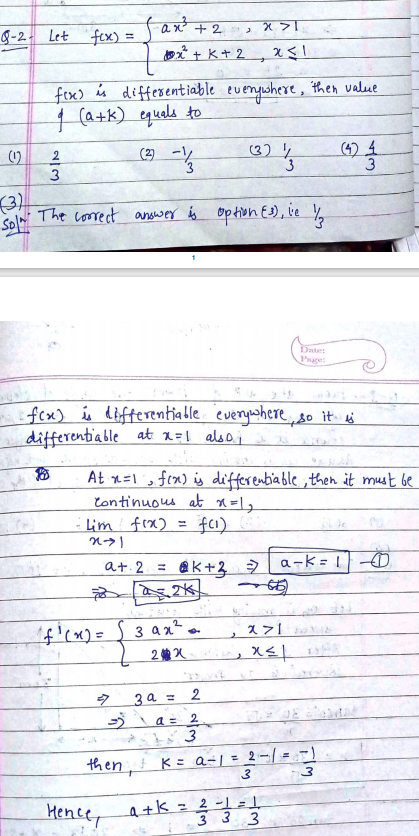 Q-2- Let f(x) = { ax³ + 2 , x > 1
x² + k + 2 , x ≤ 1
f(x) is differentiable everywhere, then value
of (a+k) equals to
(1) 2/3 (2) -1/3 (3) 1/3 (4) 4/3
(3)
Solⁿ The correct answer is option (3), i.e 1/3
1
Date:
Page:
f(x) is differentiable everywhere, so it is
differentiable at x=1 also,
At x=1, f(x) is differentiable, then it must be
continuous at x=1,
Lim f(x) = f(1)
x→1
a+2 = k+3 ⇒ a-k = 1 —①
⇒ a = 2k
f'(x) = { 3ax² , x > 1
2x , x ≤ 1
⇒ 3a = 2
⇒ a = 2/3
then, k = a-1 = 2/3 - 1 = -1/3
Hence, a+k = 2/3 - 1/3 = 1/3